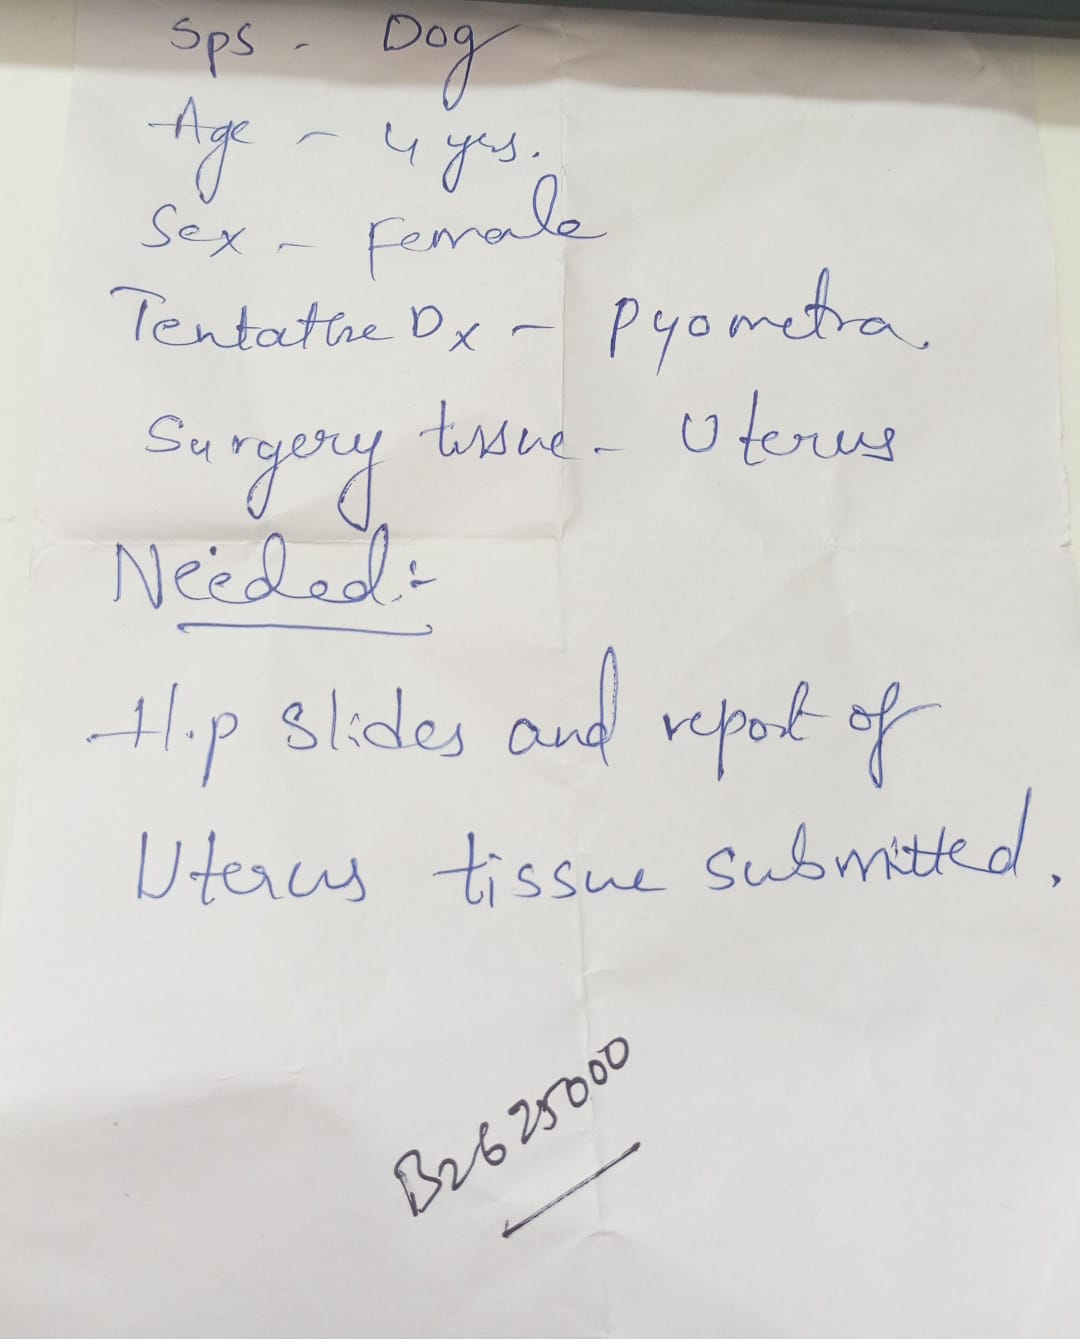 Sps - Dog
Age - 4 yrs.
Sex - Female
Tentative Dx - Pyometra
Surgery tissue - Uterus
Needed:-
H.p slides and report of
Uterus tissue submitted.
B2625000